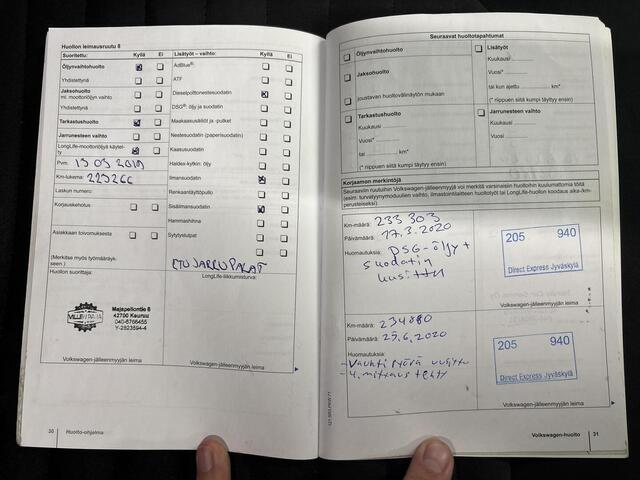 Huollon leimausruutu 8
Suoritettu: Kyllä Ei
Öljynvaihtohuolto
Yhdistettynä
Jaksohuolto
ml. moottoriöljyn vaihto
Yhdistettynä
Tarkastushuolto
Jarrunesteen vaihto
LongLife-moottoriöljyä käytet-
ty
Pvm: 15 05 2019
Km-lukema:
Laskun numero:
Korjauskehotus
Asiakkaan toivomuksesta
(Merkitse myös työmääräyk-
seen.)
Huollon suorittaja:
Majapellontie 6
42700 Keuruu
040-8766455
Y-2823594-4
Volkswagen-jälleenmyyjän leima
Lisätyöt – vaihto: Kyllä Ei
AdBlue®:
ATF
Dieselpolttonestesuodatin
DSG®: öljy ja suodatin
Maakaasusäiliöt ja -putket
Nestesuodatin (paperisuodatin)
Kaasusuodatin
Haldex-kytkin: öljy
Ilmansuodatin
Renkaantäyttöpullo
Sisäilmansuodatin
Hammashihna
Sytytystulpat
ETUJARRUPALAT
LongLife-liikkumisturva:
Volkswagen-jälleenmyyjän leima
30 Huolto-ohjelma
Seuraavat huoltotapahtumat
Öljynvaihtohuolto
Jaksohuolto
joustavan huoltovälinäytön mukaan
Tarkastushuolto
Kuukausi
Vuosi*
tai km*
(* riippuen siitä kumpi täyttyy ensin)
Lisätyöt
Kuukausi
Vuosi*
tai kun ajettu km*
(* riippuen siitä kumpi täyttyy ensin)
Jarrunesteen vaihto
Kuukausi
Vuosi
Korjaamon merkintöjä
Seuraaviin ruutuihin Volkswagen-jälleenmyyjä voi merkitä varsinaisiin huoltoihin kuulumattomia töitä
(esim: turvatyynymoduulien vaihto, ilmastointilaitteen huoltotyöt) tai LongLife-huollon koodaus aika-/km-
perusteiseksi)
Km-määrä: 233 303
Päivämäärä: 17.3.2020
Huomautuksia: DSG-öljy +
suodatin
uusittu
205 940
Direct Express Jyväskylä
Volkswagen-jälleenmyyjän leima
Km-määrä: 234880
Päivämäärä: 25.6.2020
Huomautuksia:
- Vauhtipyörä uusittu
- 4.mittaus tehty
205 940
Direct Express Jyväskylä
Volkswagen-jälleenmyyjän leima
Volkswagen-huolto 31